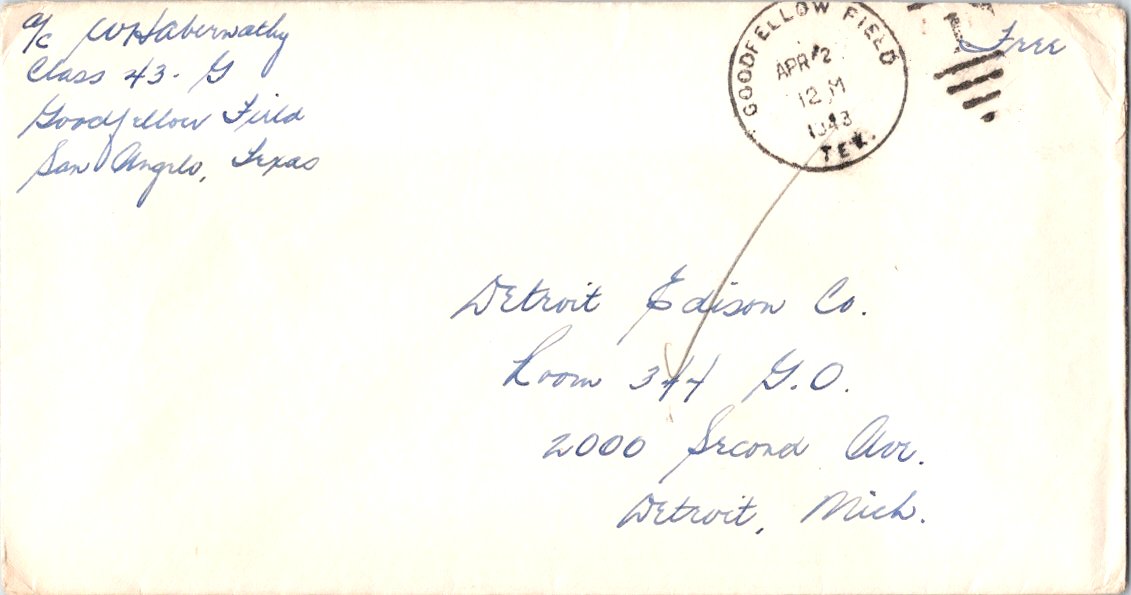 A/C WHAbernathy
Class 43-G
Goodfellow Field
San Angelo, Texas
GOODFELLOW FIELD
APR 2
12 M
1943
TEX.
Free
Detroit Edison Co.
Room 344 G.O.
2000 Second Ave.
Detroit, Mich.